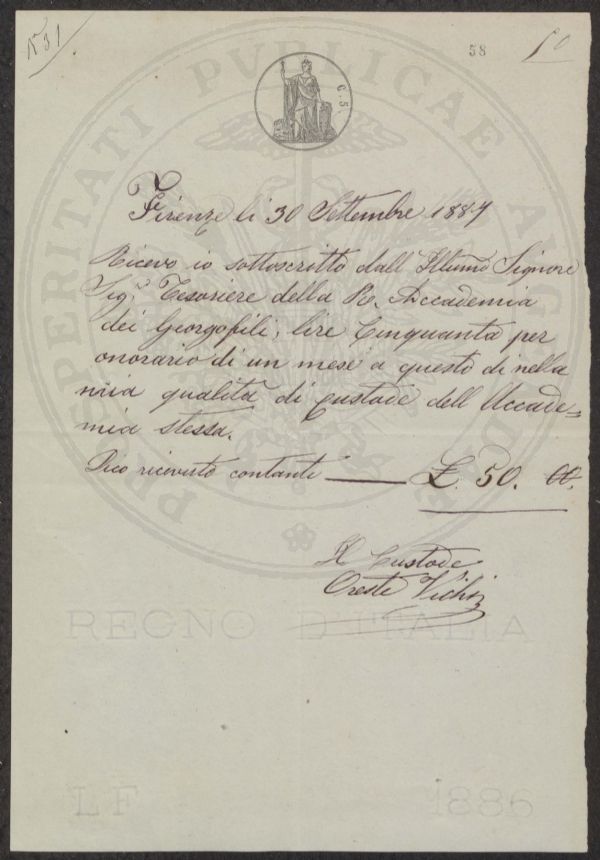 N 31
58
50
C. 5.
PROSPERITATI PVBLICAE AVGENDAE
Firenze li 30 Settembre 1887
Ricevo io sottoscritto dall Illumo Signore
Sigr. Tesoriere della Re. Accademia
dei Georgofili, lire Cinquanta per
onorario di un mese a questo di nella
mia qualità di Custode dell Accade=
mia stessa.
Dico ricevuto contanti £. 50. 00.
Il Custode
Oreste Vichi
REGNO D'ITALIA
LF 1886